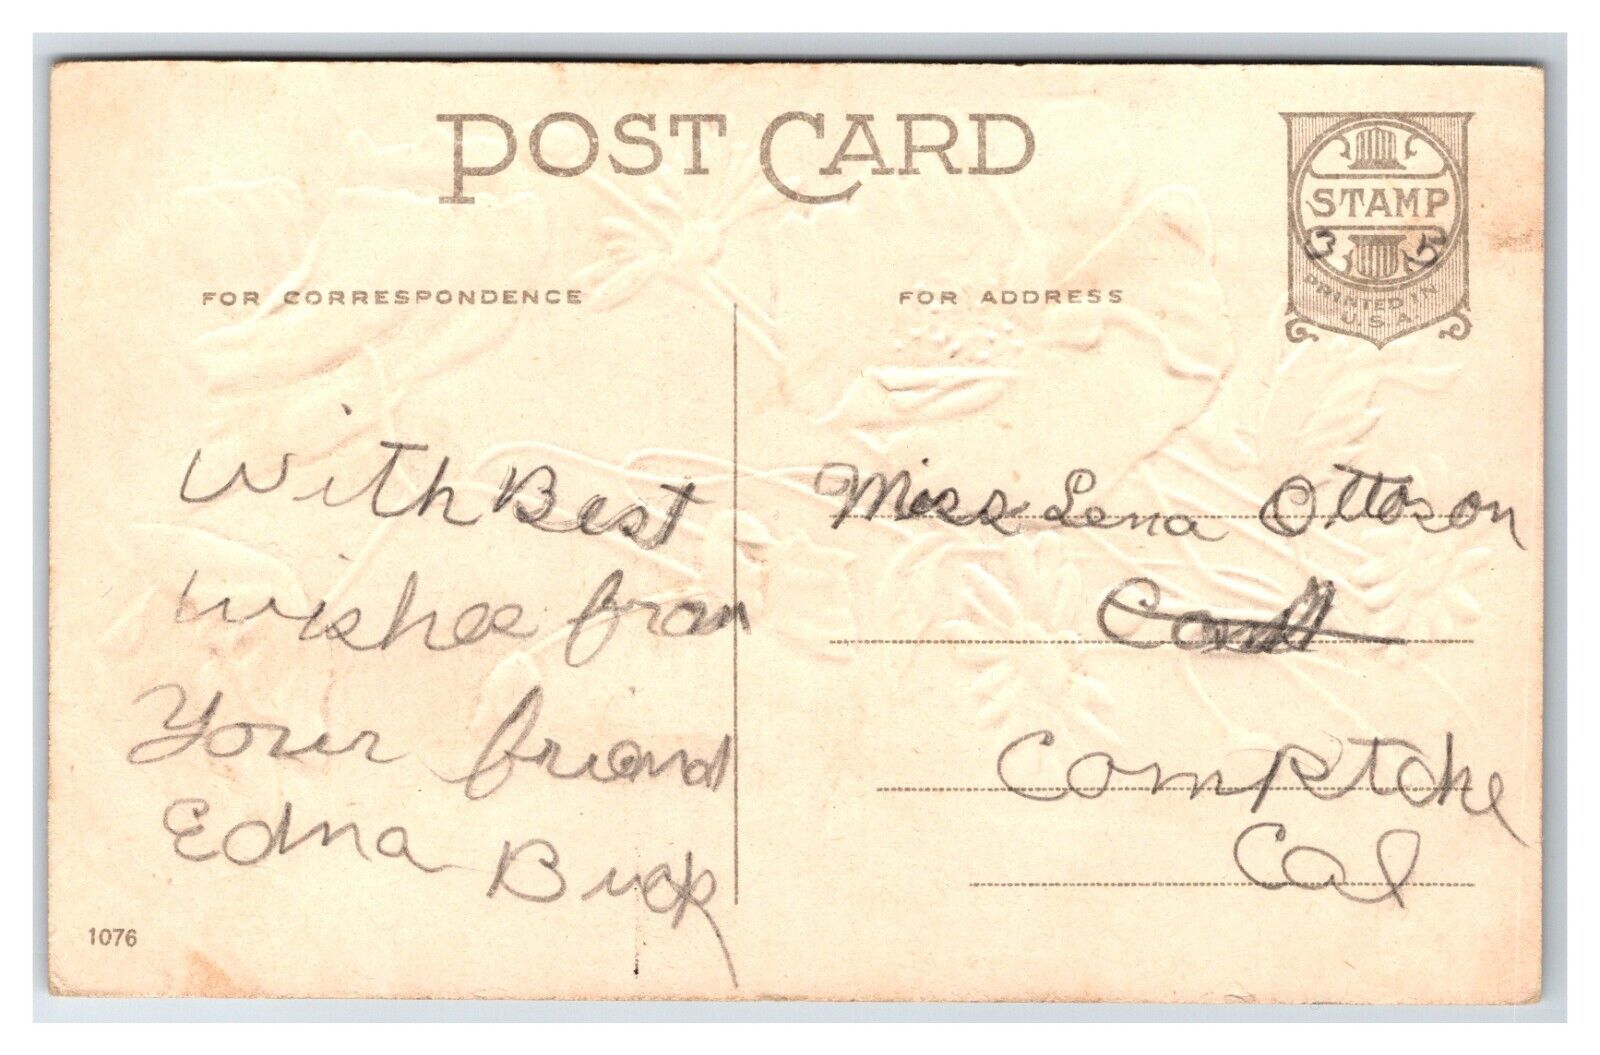 POST CARD
STAMP
35
PRINTED IN
U.S.A.
FOR CORRESPONDENCE
FOR ADDRESS
With Best
wishes from
Your friend
Edna Buck
Miss Lena Ottoson
Comptche
Cal
1076